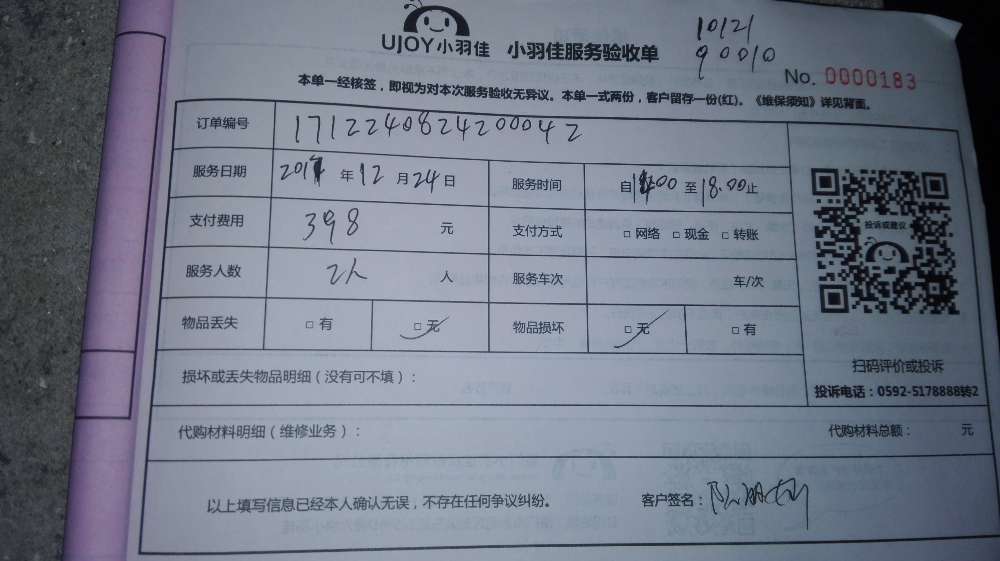 UJOY小羽佳 小羽佳服务验收单
10/21
90010
No. 0000183
本单一经核签，即视为对本次服务验收无异议。本单一式两份，客户留存一份(红)。《维保须知》详见背面。
订单编号 1712240824200042
服务日期 2017年12月24日 服务时间 自14:00至18:00止
支付费用 398 元 支付方式 □ 网络 □ 现金 □ 转账
服务人数 2人 人 服务车次 车/次
物品丢失 □ 有 □ 无 物品损坏 □ 无 □ 有
投诉或建议
扫码评价或投诉
投诉电话：0592-5178888转2
损坏或丢失物品明细（没有可不填）：
代购材料明细（维修业务）： 代购材料总额： 元
以上填写信息已经本人确认无误，不存在任何争议纠纷。 客户签名：